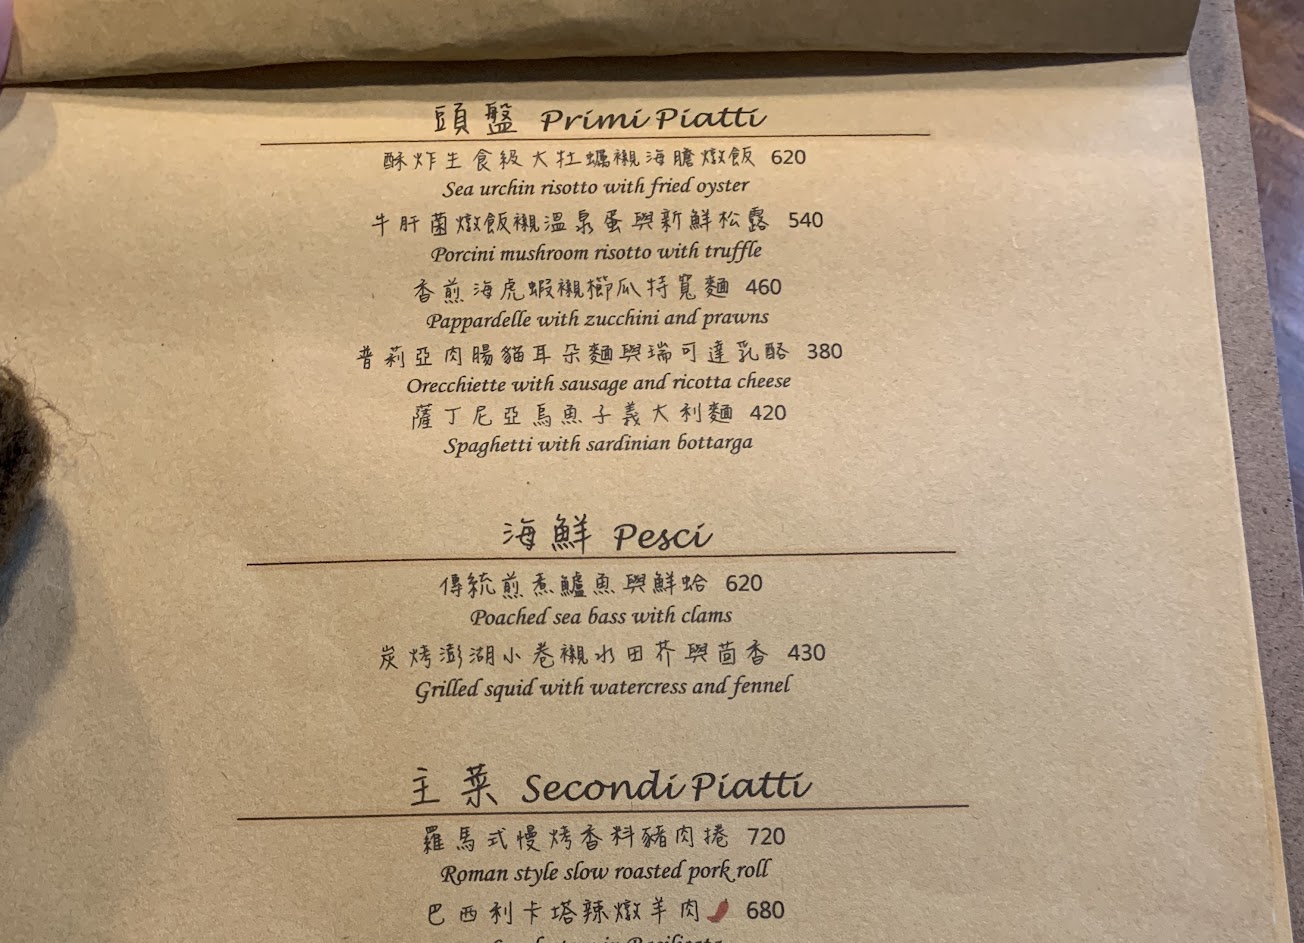 頭盤 Primi Piatti
酥炸生食級大牡蠣襯海膽燉飯 620
Sea urchin risotto with fried oyster
牛肝菌燉飯襯溫泉蛋與新鮮松露 540
Porcini mushroom risotto with truffle
香煎海虎蝦襯櫛瓜特寬麵 460
Pappardelle with zucchini and prawns
普莉亞肉腸貓耳朵麵與瑞可達乳酪 380
Orecchiette with sausage and ricotta cheese
薩丁尼亞烏魚子義大利麵 420
Spaghetti with sardinian bottarga
海鮮 Pesci
傳統煎煮鱸魚與鮮蛤 620
Poached sea bass with clams
炭烤澎湖小卷襯水田芥與茴香 430
Grilled squid with watercress and fennel
主菜 Secondi Piatti
羅馬式慢烤香料豬肉捲 720
Roman style slow roasted pork roll
巴西利卡塔辣燉羊肉 680